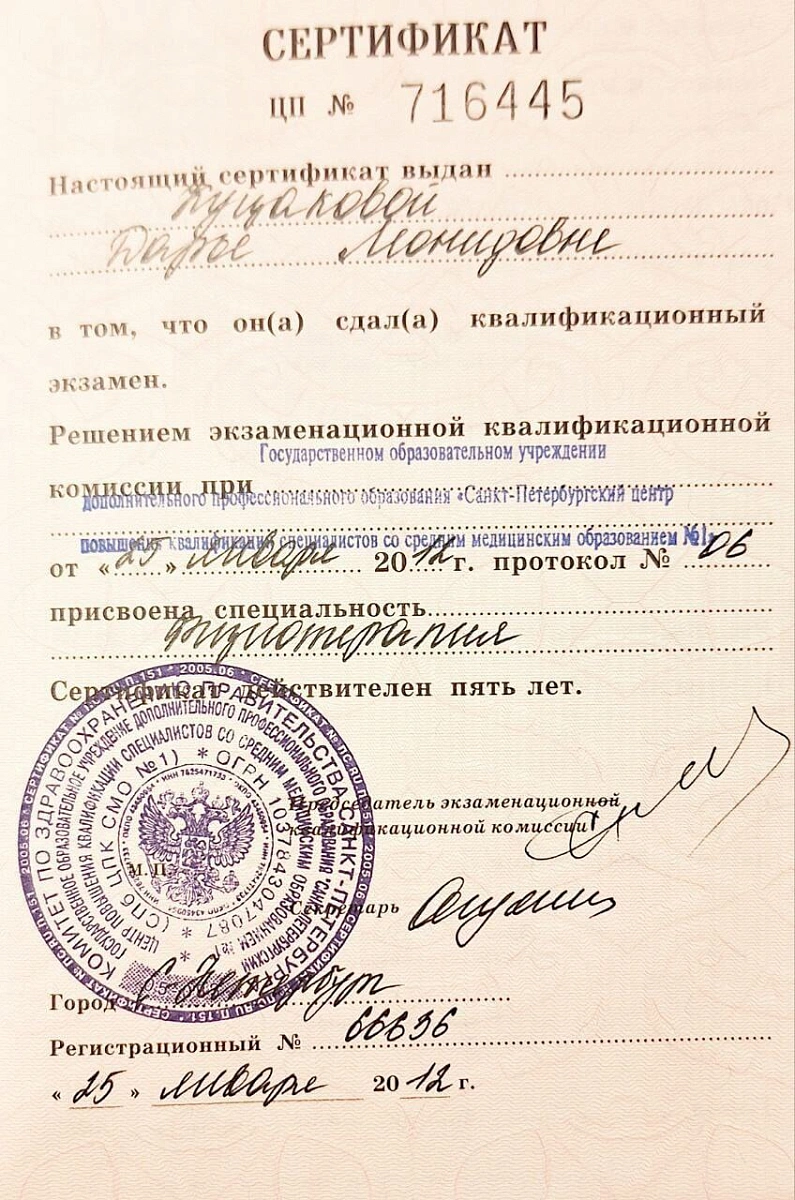 СЕРТИФИКАТ
ЦП № 716445
Настоящий сертификат выдан
Кущаковой
Дарье Леонидовне
в том, что он(а) сдал(а) квалификационный
экзамен.
Решением экзаменационной квалификационной
Государственном образовательном учреждении
комиссии при
дополнительного профессионального образования «Санкт-Петербургский центр
повышения квалификации специалистов со средним медицинским образованием №1»
от «25» января 2012г. протокол № 06
присвоена специальность
Физиотерапия
Сертификат действителен пять лет.
КОМИТЕТ ПО ЗДРАВООХРАНЕНИЮ ПРАВИТЕЛЬСТВА САНКТ-ПЕТЕРБУРГА
ГОСУДАРСТВЕННОЕ ОБРАЗОВАТЕЛЬНОЕ УЧРЕЖДЕНИЕ ДОПОЛНИТЕЛЬНОГО ПРОФЕССИОНАЛЬНОГО ОБРАЗОВАНИЯ "САНКТ-ПЕТЕРБУРГСКИЙ
ЦЕНТР ПОВЫШЕНИЯ КВАЛИФИКАЦИИ СПЕЦИАЛИСТОВ СО СРЕДНИМ МЕДИЦИНСКИМ ОБРАЗОВАНИЕМ №1"
(СПб ЦПК СМО №1) * ОГРН 1037843047087 *
Председатель экзаменационной
квалификационной комиссии
М.П.
Секретарь
Город С-Петербург
Регистрационный № 66636
«25» января 2012 г.